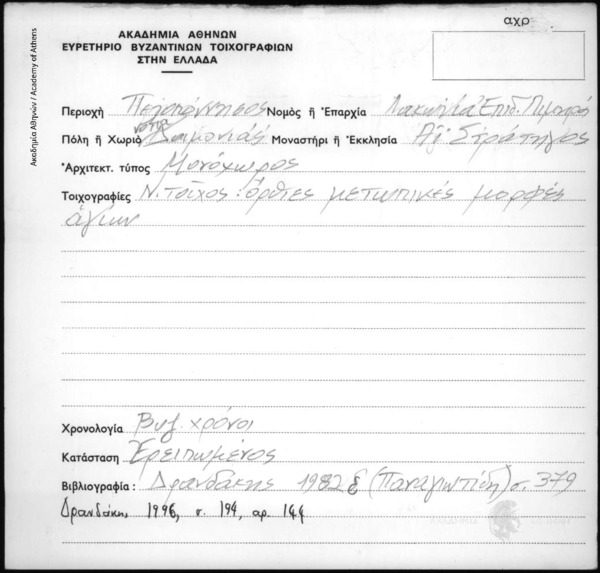 αχρ
ΑΚΑΔΗΜΙΑ ΑΘΗΝΩΝ
ΕΥΡΕΤΗΡΙΟ ΒΥΖΑΝΤΙΝΩΝ ΤΟΙΧΟΓΡΑΦΙΩΝ
ΣΤΗΝ ΕΛΛΑΔΑ
Ακαδημία Αθηνών / Academy of Athens
Περιοχή Πελοπόννησος Νομός ἤ Ἐπαρχία Λακωνία Ἐπιδ. Λιμηρά
νότια
Πόλη ἤ Χωριό Δαιμονιάς Μοναστήρι ἤ Ἐκκλησία Ἁϊ Στράτηγος
Ἀρχιτεκτ. τύπος Μονόχωρος
Τοιχογραφίες Ν. τοίχος: ὄρθιες μετωπικές μορφές
ἁγίων
Χρονολογία Βυζ. χρόνοι
Κατάσταση Ἐρειπωμένος
Βιβλιογραφία: Δρανδάκης 1982 (Παναγιωτίδη) σ. 379
Δρανδάκη, 1996, σ. 194, αρ. 144